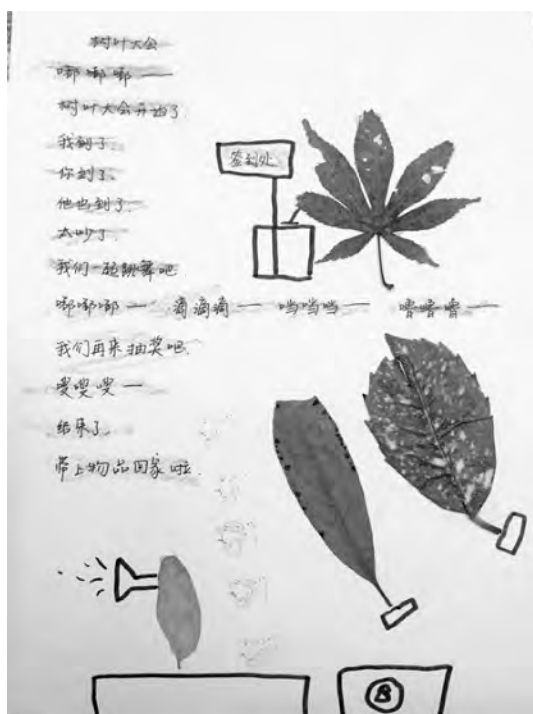 树叶大会
嘟嘟嘟——
树叶大会开始了
我到了.
你到了、
他也到了.
太吵了.
我们一起跳舞吧
嘟嘟嘟— 滴滴滴— 当当当— 噜噜噜—
我们再来抽奖吧.
嗖嗖嗖—
结束了.
带上物品回家啦.
签到处
B